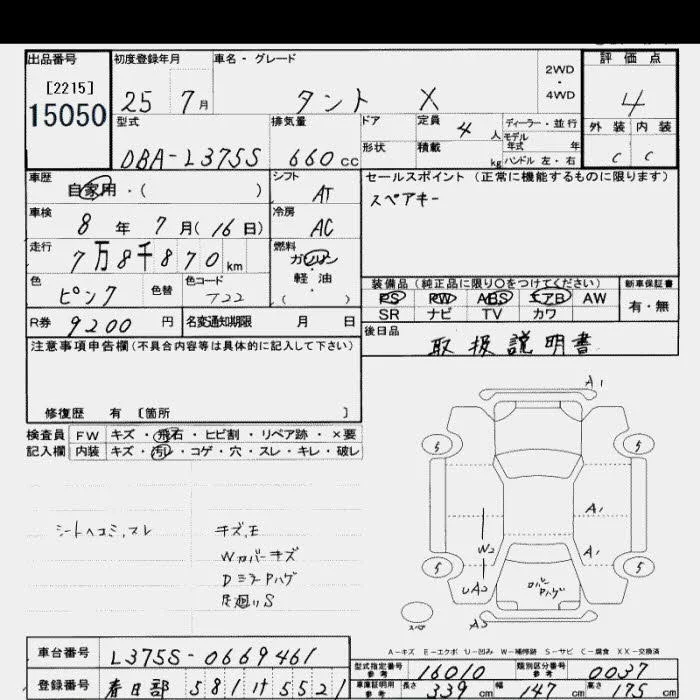 出品番号 初度登録年月 車名・グレード 評価点
[2215] 2WD
15050 25 7月 タント X 4WD 4
型式 排気量 ドア 定員 4人 ディーラー・並行 外装 内装
モデル年式 年
DBA-L375S 660cc 形状 積載 kg ハンドル 左・右 C C
車歴 自家用・( ) シフト AT セールスポイント (正常に機能するものに限ります)
スペアキー
車検 8年7月(16日) 冷房 AC
走行 7万8千870km 燃料 ガソリン・軽油 ( )
色 ピンク 色替 色コード T22 装備品 (純正品に限り○をつけてください) 新車保証書
PS PW ABS エアB AW 有・無
SR ナビ TV カワ
R券 9200円 名変通知期限 月 日 後日品 取扱説明書
注意事項申告欄(不具合内容等は具体的に記入して下さい)
修復歴 有 〔箇所 〕
検査員 FW キズ・飛石・ヒビ割・リペア跡・×要
記入欄 内装 キズ・汚レ・コゲ・穴・スレ・キレ・破レ
シートヘコミ,スレ キズ,E
Wカバーキズ
DミラーPハゲ
足廻りS
A1
5 5
A1
W2 A1
5 5
UA2
スペア A2
A-キズ E-エクボ U-凹み W-補修跡 S-サビ C-腐食 XX-交換済
車台番号 L375S-0669461 型式指定番号 参考 16010 類別区分番号 参考 0037
登録番号 春日部 581 け 5521 車庫証明用 参考 長さ 339cm 幅 147cm 高さ 175cm